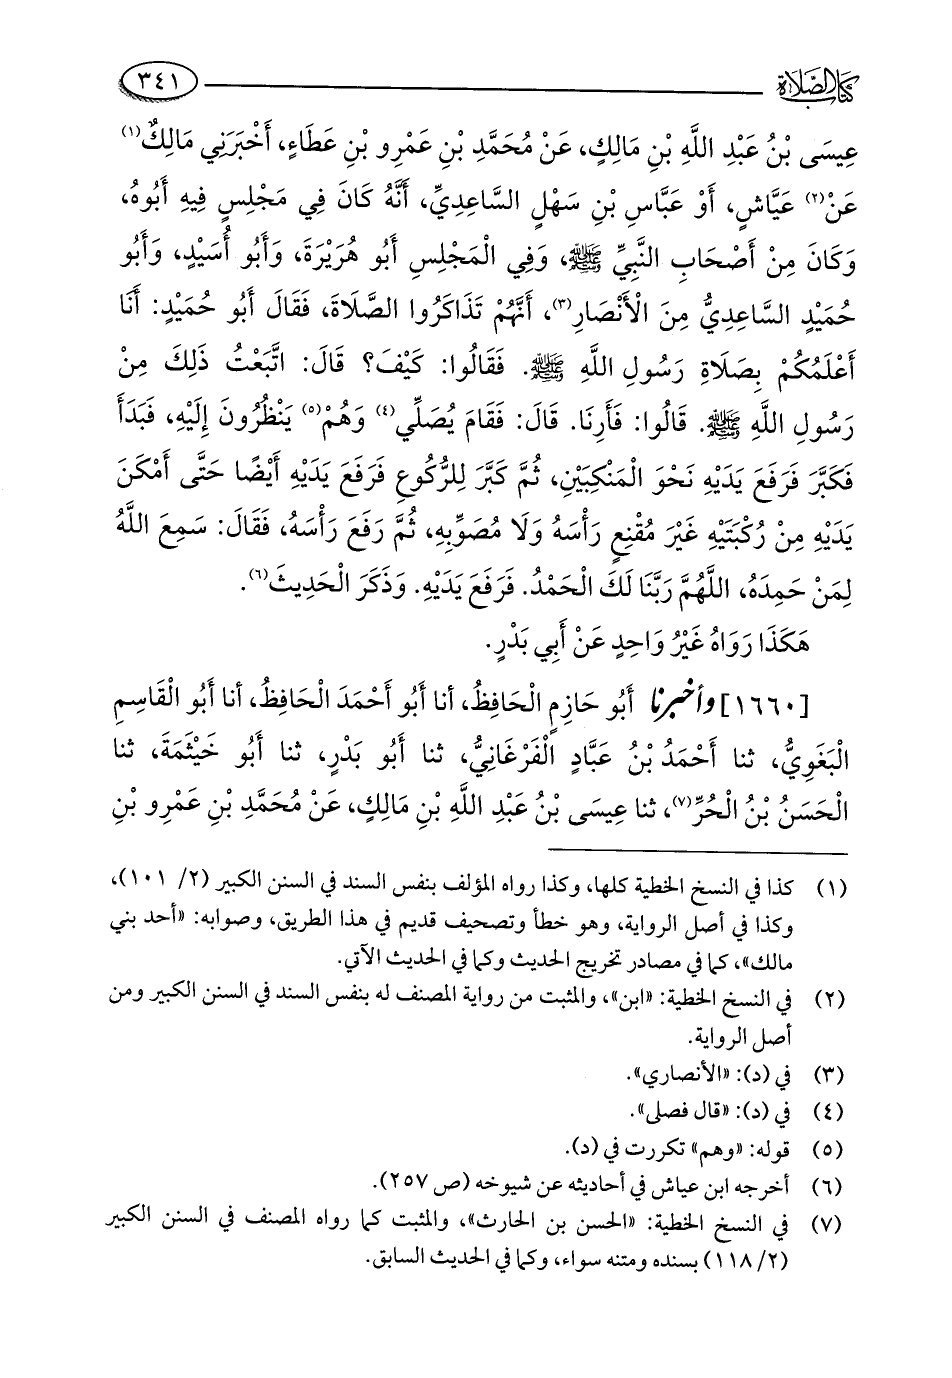 كتاب الصلاة ٣٤١
عِيسَى بْنُ عَبْدِ اللَّهِ بْنِ مَالِكٍ، عَنْ مُحَمَّدِ بْنِ عَمْرِو بْنِ عَطَاءٍ، أَخْبَرَنِي مَالِكٌ(١)
عَنْ(٢) عَيَّاشٍ، أَوْ عَبَّاسِ بْنِ سَهْلٍ السَّاعِدِيِّ، أَنَّهُ كَانَ فِي مَجْلِسٍ فِيهِ أَبُوهُ،
وَكَانَ مِنْ أَصْحَابِ النَّبِيِّ ﷺ، وَفِي الْمَجْلِسِ أَبُو هُرَيْرَةَ، وَأَبُو أُسَيْدٍ، وَأَبُو
حُمَيْدٍ السَّاعِدِيُّ مِنَ الْأَنْصَارِ(٣)، أَنَّهُمْ تَذَاكَرُوا الصَّلَاةَ، فَقَالَ أَبُو حُمَيْدٍ: أَنَا
أَعْلَمُكُمْ بِصَلَاةِ رَسُولِ اللَّهِ ﷺ. فَقَالُوا: كَيْفَ؟ قَالَ: اتَّبَعْتُ ذَلِكَ مِنْ
رَسُولِ اللَّهِ ﷺ. قَالُوا: فَأَرِنَا. قَالَ: فَقَامَ يُصَلِّي(٤) وَهُمْ(٥) يَنْظُرُونَ إِلَيْهِ، فَبَدَأَ
فَكَبَّرَ فَرَفَعَ يَدَيْهِ نَحْوَ الْمَنْكِبَيْنِ، ثُمَّ كَبَّرَ لِلرُّكُوعِ فَرَفَعَ يَدَيْهِ أَيْضًا حَتَّى أَمْكَنَ
يَدَيْهِ مِنْ رُكْبَتَيْهِ غَيْرَ مُقْنِعٍ رَأْسَهُ وَلَا مُصَوِّبِهِ، ثُمَّ رَفَعَ رَأْسَهُ، فَقَالَ: سَمِعَ اللَّهُ
لِمَنْ حَمِدَهُ، اللَّهُمَّ رَبَّنَا لَكَ الْحَمْدُ. فَرَفَعَ يَدَيْهِ. وَذَكَرَ الْحَدِيثَ(٦).
هَكَذَا رَوَاهُ غَيْرُ وَاحِدٍ عَنْ أَبِي بَدْرٍ.
[١٦٦٠] وأخبرنا أَبُو حَازِمٍ الْحَافِظُ، أنا أَبُو أَحْمَدَ الْحَافِظُ، أنا أَبُو الْقَاسِمِ
الْبَغَوِيُّ، ثنا أَحْمَدُ بْنُ عَبَّادٍ الْفَرْغَانِيُّ، ثنا أَبُو بَدْرٍ، ثنا أَبُو خَيْثَمَةَ، ثنا
الْحَسَنُ بْنُ الْحُرِّ(٧)، ثنا عِيسَى بْنُ عَبْدِ اللَّهِ بْنِ مَالِكٍ، عَنْ مُحَمَّدِ بْنِ عَمْرِو بْنِ
(١) كذا في النسخ الخطية كلها، وكذا رواه المؤلف بنفس السند في السنن الكبير (٢/ ١٠١)،
وكذا في أصل الرواية، وهو خطأ وتصحيف قديم في هذا الطريق، وصوابه: «أحد بني
مالك»، كما في مصادر تخريج الحديث وكما في الحديث الآتي.
(٢) في النسخ الخطية: «ابن»، والمثبت من رواية المصنف له بنفس السند في السنن الكبير ومن
أصل الرواية.
(٣) في (د): «الأنصاري».
(٤) في (د): «قال فصلى».
(٥) قوله: «وهم» تكررت في (د).
(٦) أخرجه ابن عياش في أحاديثه عن شيوخه (ص ٢٥٧).
(٧) في النسخ الخطية: «الحسن بن الحارث»، والمثبت كما رواه المصنف في السنن الكبير
(٢/ ١١٨) بسنده ومتنه سواء، وكما في الحديث السابق.